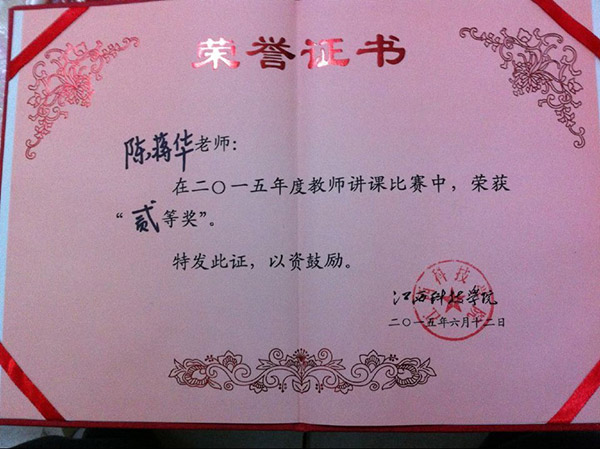 荣誉证书
陈蒋华老师：
在二〇一五年度教师讲课比赛中，荣获
“贰等奖”。
特发此证，以资鼓励。
江西科技学院
二〇一五年六月十二日